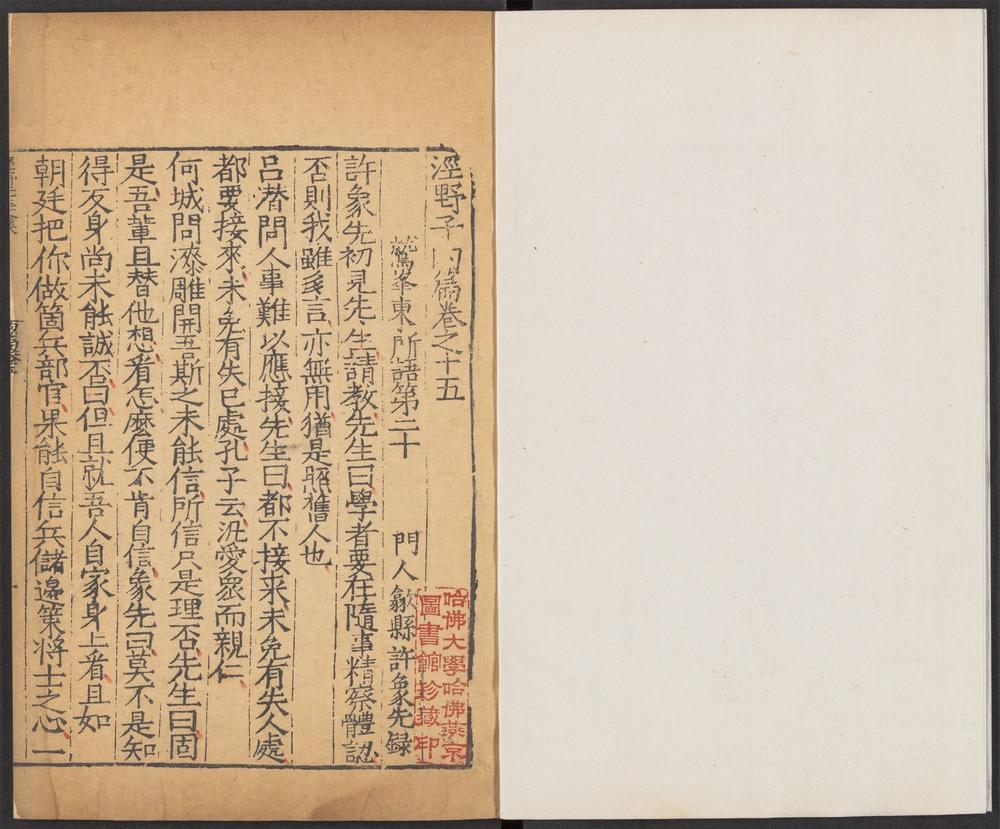 涇野子內篇卷之十五
鷲峯東所語第二十
門人歙縣許象先錄
許象先初見先生請教先生曰學者要在隨事精察體認
否則我雖多言亦無用猶是照舊人也
呂潛問人事難以應接先生曰都不接來未免有失人處
都要接來未免有失己處孔子云汎愛衆而親仁
何城問漆雕開吾斯之未能信所信只是理否先生曰固
是吾輩且替他想看怎麽便不肯自信象先曰莫不是知
得反身尚未能誠否曰但且就吾人自家身上看且如
朝廷把你做箇兵部官果能自信兵儲邊策將士之心一
哈佛大學哈佛燕京
圖書館珍藏印